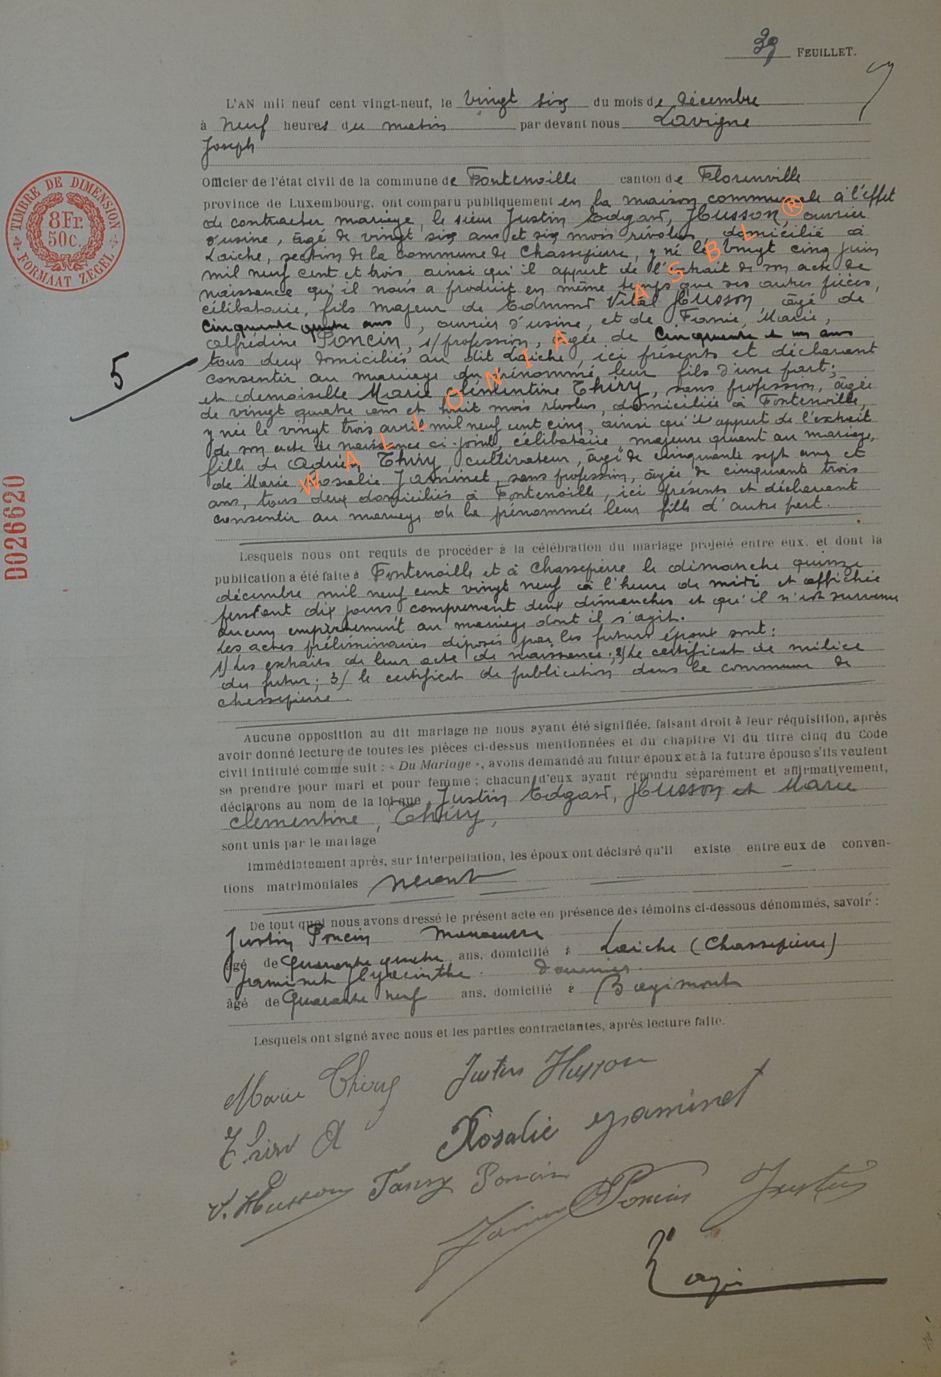 39 FEUILLET.
L'AN mil neuf cent vingt-neuf, le vingt six du mois de décembre
à neuf heures du matin par devant nous Lavigne
Joseph
Officier de l'état civil de la commune de Fontenoille canton de Florenville
province de Luxembourg, ont comparu publiquement en la maison communale à l'effet
de contracter mariage, le sieur Justin Edgard, Husson, ouvrier
d'usine, âgé de vingt six ans et six mois révolus, domicilié à
Laiche, section de la commune de Chassepierre, y né le vingt cinq juin
mil neuf cent et trois, ainsi qu'il appert de l'extrait de son acte de
naissance qu'il nous a produit en même temps que ses autres pièces,
célibataire, fils majeur de Edmond Vital Husson, âgé de
cinquante quatre ans, ouvrier d'usine, et de Marie,
Alfrédine Poncin, s/profession, âgée de cinquante et un ans
tous deux domiciliés au dit Laiche, ici présents et déclarant
consentir au mariage du prénommé leur fils d'une part;
5
et demoiselle Marie Clémentine Thiry, sans profession, âgée
de vingt quatre ans et huit mois révolus, domiciliée à Fontenoille,
y née le vingt trois avril mil neuf cent cinq, ainsi qu'il appert de l'extrait
de son acte de naissance ci-joint, célibataire, majeure quant au mariage,
fille de Adrien Thiry, cultivateur, âgé de cinquante sept ans et
de Marie Rosalie Jaminet, sans profession, âgée de cinquante trois
ans, tous deux domiciliés à Fontenoille, ici présents et déclarant
consentir au mariage de la prénommée leur fille d'autre part.
Lesquels nous ont requis de procéder à la célébration du mariage projeté entre eux, et dont la
publication a été faite à Fontenoille et à Chassepierre le dimanche quinze
décembre mil neuf cent vingt neuf à l'heure de midi et affichée
pendant dix jours comprenant deux dimanches et qu'il n'est survenu
aucun empêchement au mariage dont il s'agit.
Les actes préliminaires déposés par les futurs époux sont:
1/ Les extraits de leur acte de naissance; 2/ Le certificat de milice
du futur; 3/ le certificat de publication dans la commune de
Chassepierre.
Aucune opposition au dit mariage ne nous ayant été signifiée, faisant droit à leur réquisition, après
avoir donné lecture de toutes les pièces ci-dessus mentionnées et du chapitre VI du titre cinq du Code
civil intitulé comme suit : « Du Mariage », avons demandé au futur époux et à la future épouse s'ils veulent
se prendre pour mari et pour femme ; chacun d'eux ayant répondu séparément et affirmativement,
déclarons au nom de la loi que Justin Edgard, Husson et Marie
Clémentine, Thiry,
sont unis par le mariage
Immédiatement après, sur interpellation, les époux ont déclaré qu'il existe entre eux de conven-
tions matrimoniales
De tout quoi nous avons dressé le présent acte en présence des témoins ci-dessous dénommés, savoir :
Justin Poncin Manoeuvre
âgé de quarante quatre ans, domicilié à Laiche (Chassepierre)
Jaminet Hyacinthe Douanier
âgé de quarante neuf ans, domicilié à Bagimont
Lesquels ont signé avec nous et les parties contractantes, après lecture faite.
Marie Thiry Justin Husson
Thiry A Rosalie Jaminet
V. Husson Fanny Poncin
Jaminet Poncin Justin
TIMBRE DE DIMENSION
8 Fr.
50 c.
FORMAAT ZEGEL
D026620
WALLONIA ASBL ®